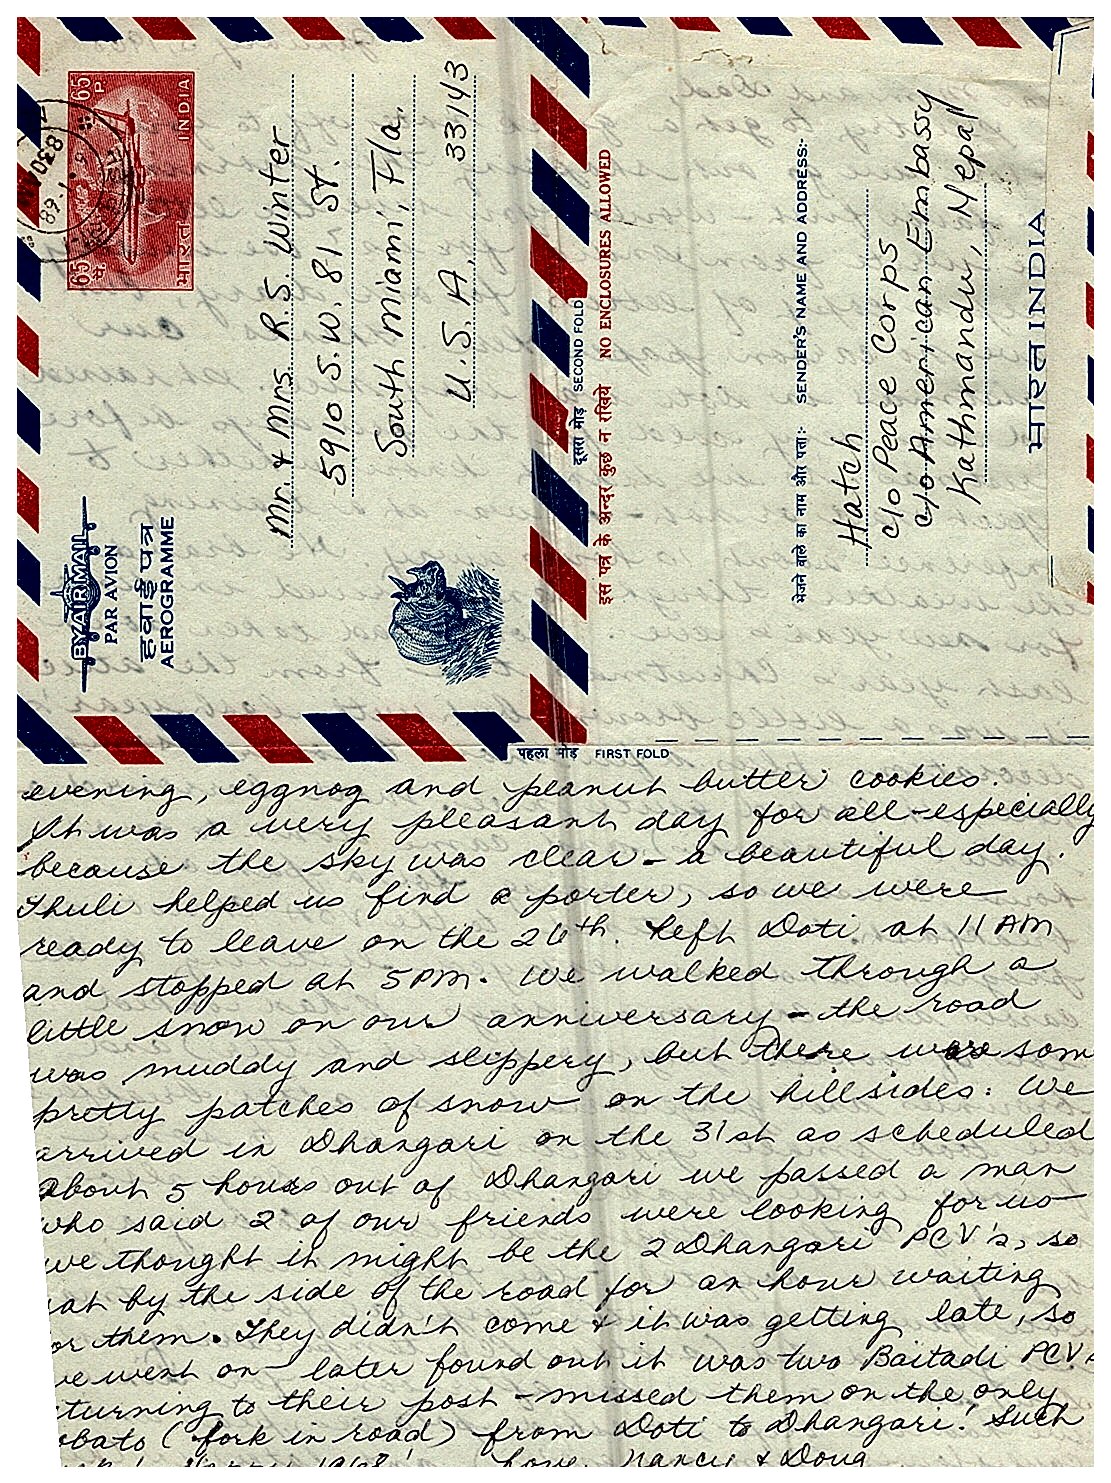 65 P.
INDIA
65 प.
भारत
830 AM
BY AIR MAIL
PAR AVION
हवाई पत्र
AEROGRAMME
Mr. & Mrs. R.S. Winter
5910 S.W. 81 St.
South Miami, Fla.
U.S.A. 33143
दूसरा मोड़ SECOND FOLD
इस पत्र के अन्दर कुछ न रखिये NO ENCLOSURES ALLOWED
भेजने वाले का नाम और पता:- SENDER'S NAME AND ADDRESS:-
Hatch
c/o Peace Corps
c/o American Embassy
Kathmandu, Nepal
भारत INDIA
पहला मोड़ FIRST FOLD
evening, eggnog and peanut butter cookies.
It was a very pleasant day for all - especially
because the sky was clear - a beautiful day.
Thuli helped us find a porter, so we were
ready to leave on the 26th. Left Doti at 11 AM
and stopped at 5 PM. We walked through a
little snow on our anniversary - the road
was muddy and slippery, but there were som
pretty patches of snow on the hillsides. We
arrived in Dhangari on the 31st as scheduled
About 5 hours out of Dhangari we passed a man
who said 2 of our friends were looking for us
we thought it might be the 2 Dhangari PCV's, so
sat by the side of the road for an hour waiting
or them. They didn't come & it was getting late, so
we went on - later found out it was two Baitadi PCV's
turning to their post - missed them on the only
obato (fork in road) from Doti to Dhangari! Such
Happy 1968! Love, Nancy & Doug